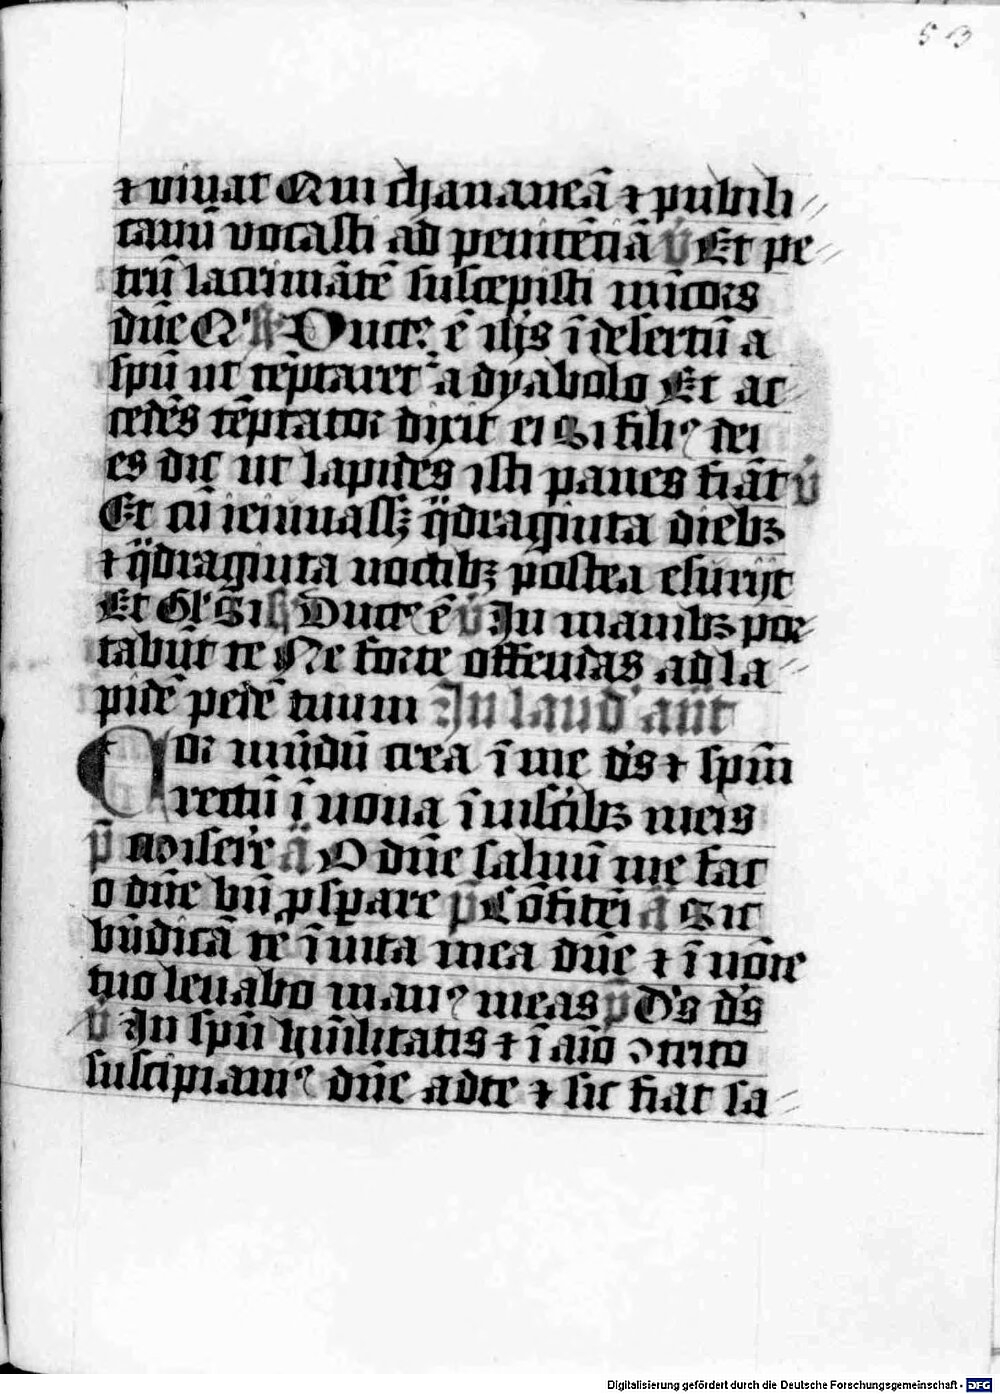 53
⁊ viuat Qui chananeā ⁊ publi//
canū vocasti ad penitēciā v̄ Et pe//
trū lacrimātē suscepisti m̄icors
dn̄e Q' R Duct9 ē ih̄s ī desertū a
spū ut tēptaret͛ a dyabolo Et ac//
cedēs tēptator dixit ei Si fili9 dei
es dic ut lapides isti panes fiāt v̄
Et cū ieiunassꝫ q̈draginta diebꝫ
⁊ q̈draginta noctibꝫ postea esurijt
Et Gl' Si R Duct9 ē v̄ In manibꝫ por//
tabūt te Ne forte offendas ad la//
pidē pedē tuum In laud' an̄t
Cor mūdū crea ī me ds ⁊ spm̄
rectū īnoua ī uiscibꝫ meis
p̄ Miser̄e a O dn̄e saluū me fac
o dn̄e bn̄ ꝓsꝑare p̄ Cōfitēi a Sic
bn̄dicā te ī uita mea dn̄e ⁊ ī noīe
tuo leuabo man9 meas p̄ D's d's
v̄ In spū hūilitatis ⁊ ī aīo ꝯtrito
suscipiam9 dn̄e a dte ⁊ sic fiat sa//
Digitalisierung gefördert durch die Deutsche Forschungsgemeinschaft - DFG